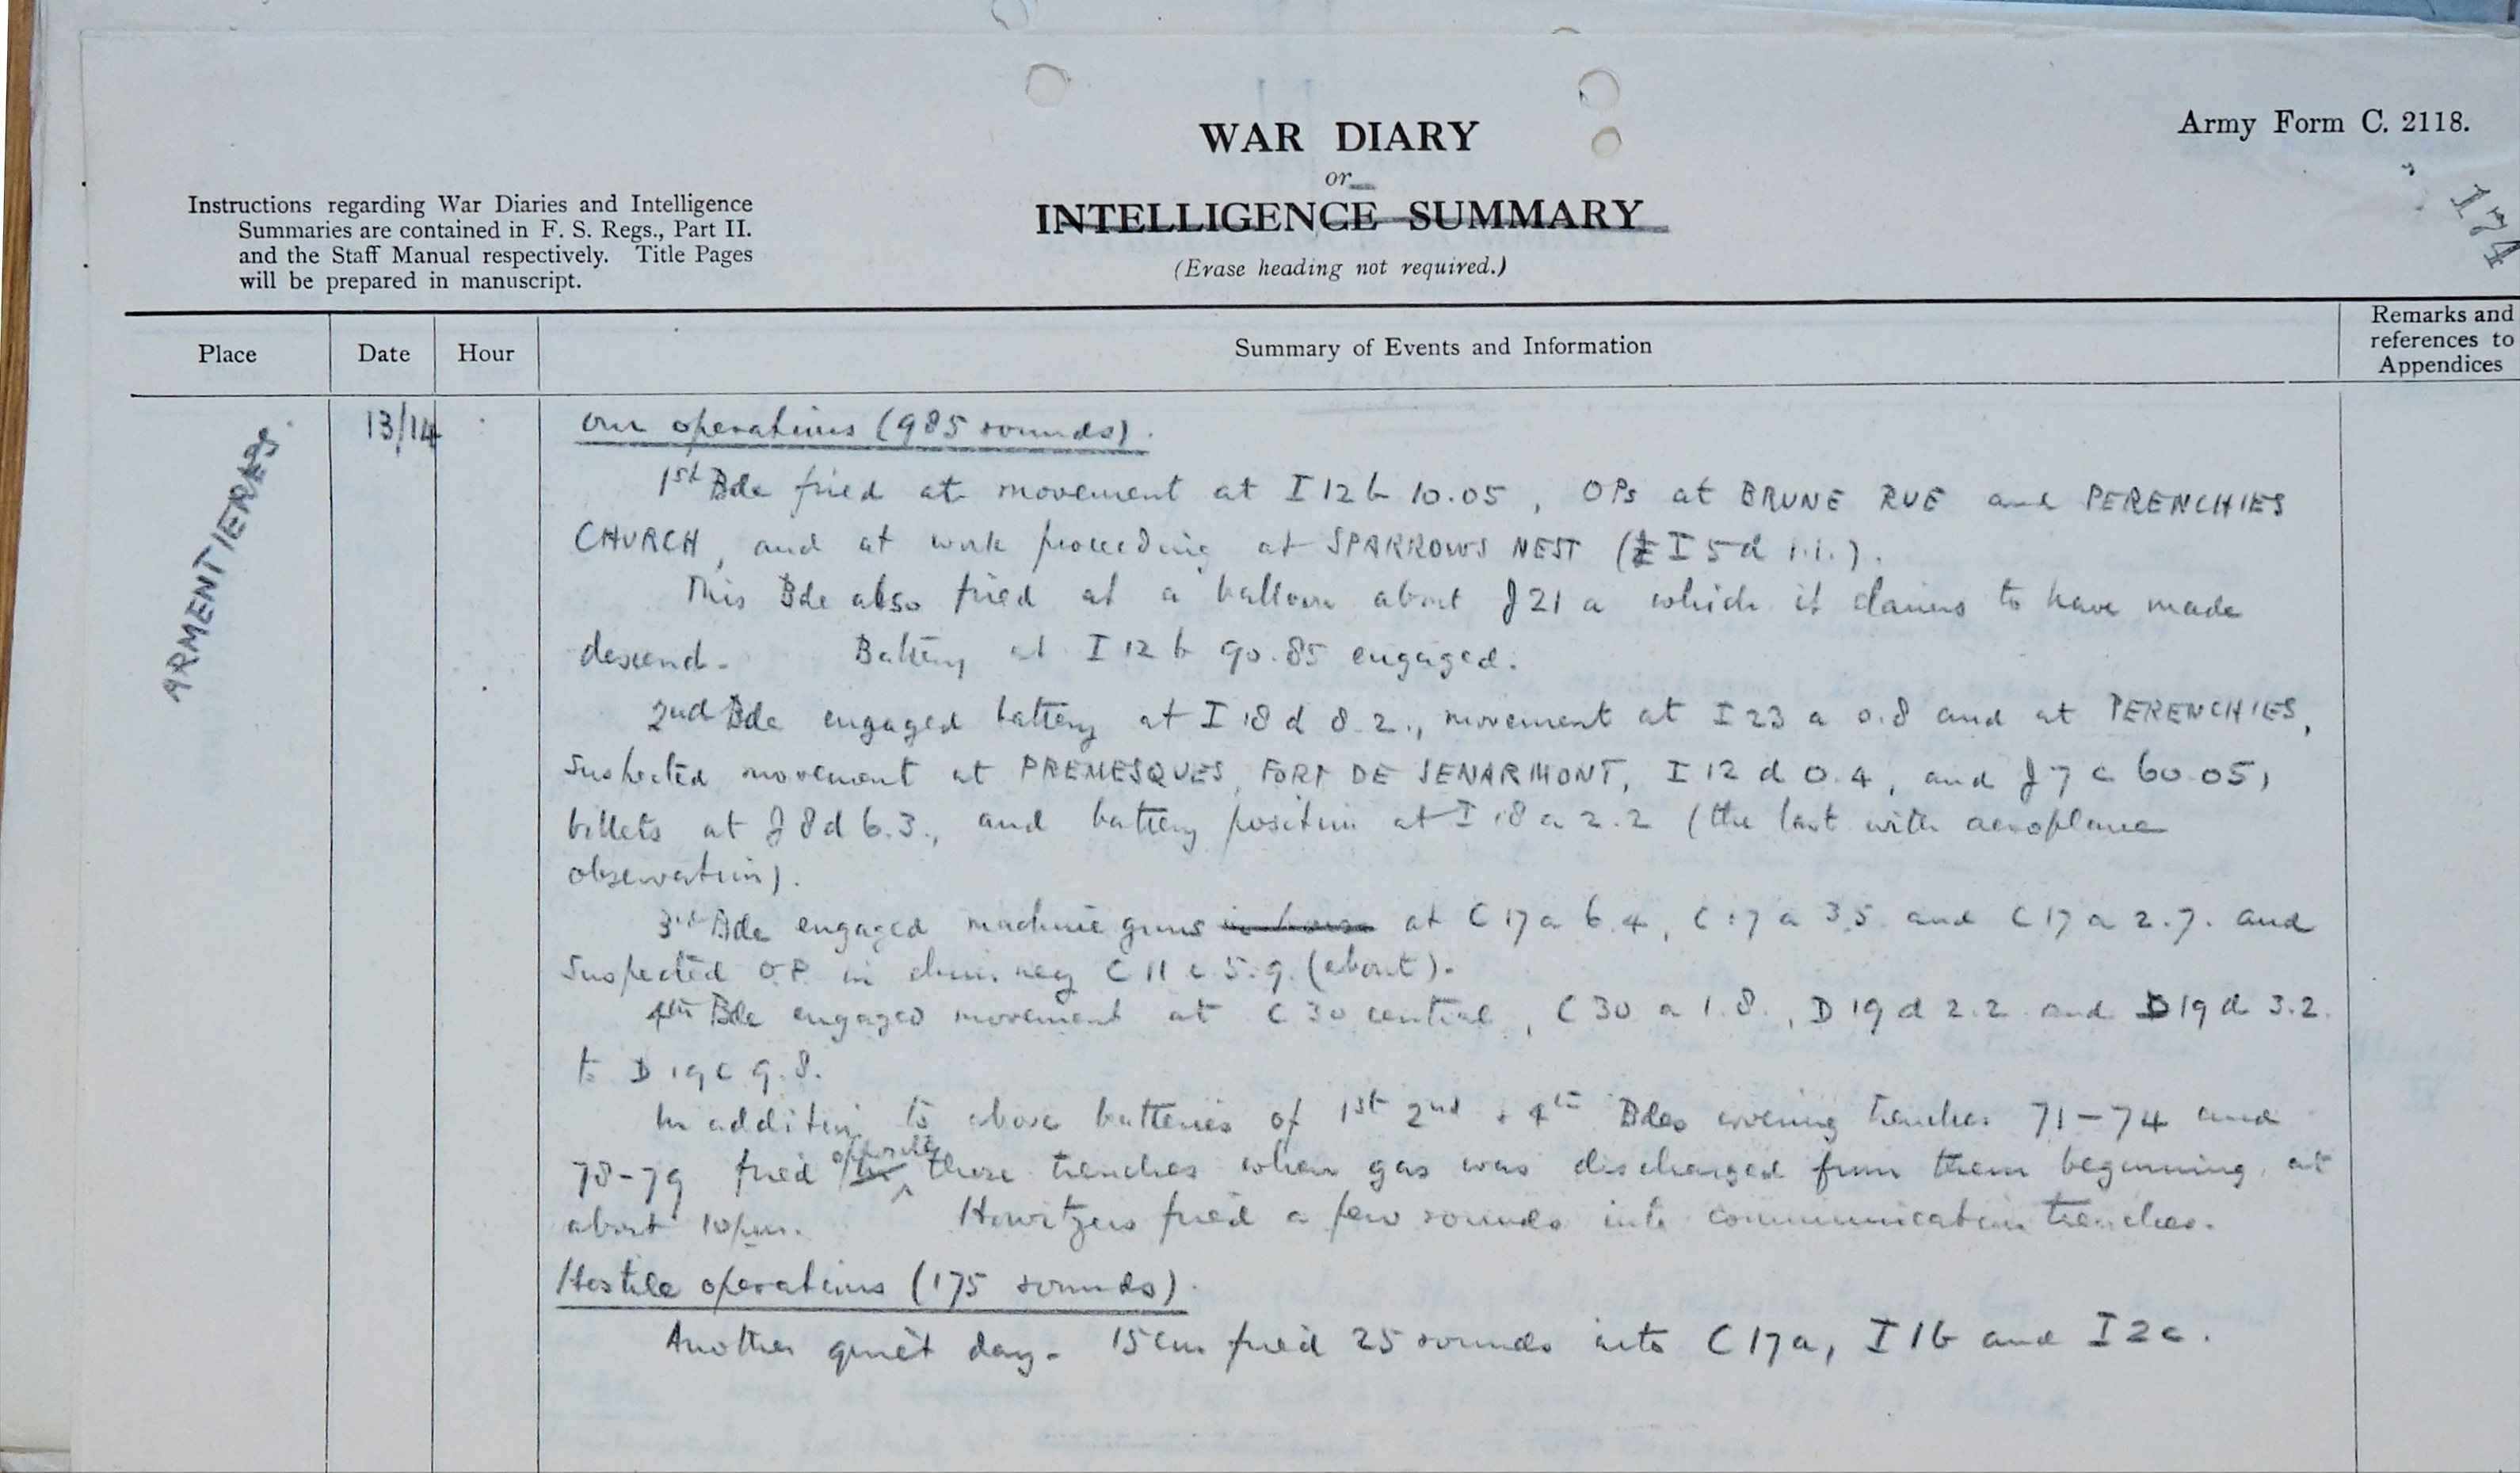 Army Form C. 2118.
174
WAR DIARY
or
INTELLIGENCE SUMMARY
(Erase heading not required.)
Instructions regarding War Diaries and Intelligence
Summaries are contained in F. S. Regs., Part II.
and the Staff Manual respectively. Title Pages
will be prepared in manuscript.
Place
Date
Hour
Summary of Events and Information
Remarks and
references to
Appendices
ARMENTIERES.
13/14
Our operations (985 rounds).
1st Bde fired at movement at I 12 b 10.05, OPs at BRUNE RUE and PERENCHIES
CHURCH, and at work proceeding at SPARROWS NEST (I 5 d 1.1.).
This Bde also fired at a balloon about J 21 a which it claims to have made
descend. Battery at I 12 b 90.85 engaged.
2nd Bde engaged battery at I 18 d 8.2., movement at I 23 a 0.8 and at PERENCHIES,
suspected movement at PREMESQUES, FORT DE SENARMONT, I 12 d 0.4, and J 7 c 60.05,
billets at J 8 d 6.3., and battery position at I 18 a 2.2 (the last with aeroplane
observation).
3rd Bde engaged machine guns in house at C 17 a 6.4, C 17 a 3.5 and C 17 a 2.7. and
suspected O.P. in chimney C 11 c 5.9. (about).
4th Bde engaged movement at C 30 central, C 30 a 1.8., D 19 d 2.2 and D 19 d 3.2.
to D 19 c 9.8.
In addition to above batteries of 1st 2nd + 4th Bdes covering trenches 71-74 and
78-79 fired opposite these trenches when gas was discharged from them beginning at
about 10 pm. Howitzers fired a few rounds into communication trenches.
Hostile operations (175 rounds).
Another quiet day. 15 cm fired 25 rounds into C 17 a, I 1 b and I 2 c.